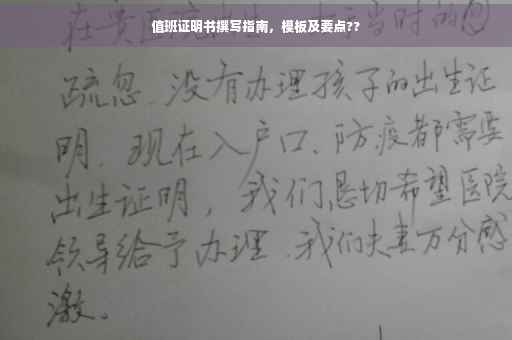 值班证明书撰写指南，模板及要点??
疏忽、没有办理孩子的出生证
明、现在入户口、防疫都需要
出生证明，我们恳切希望医院
领导给予办理、我们夫妻万分感
激。